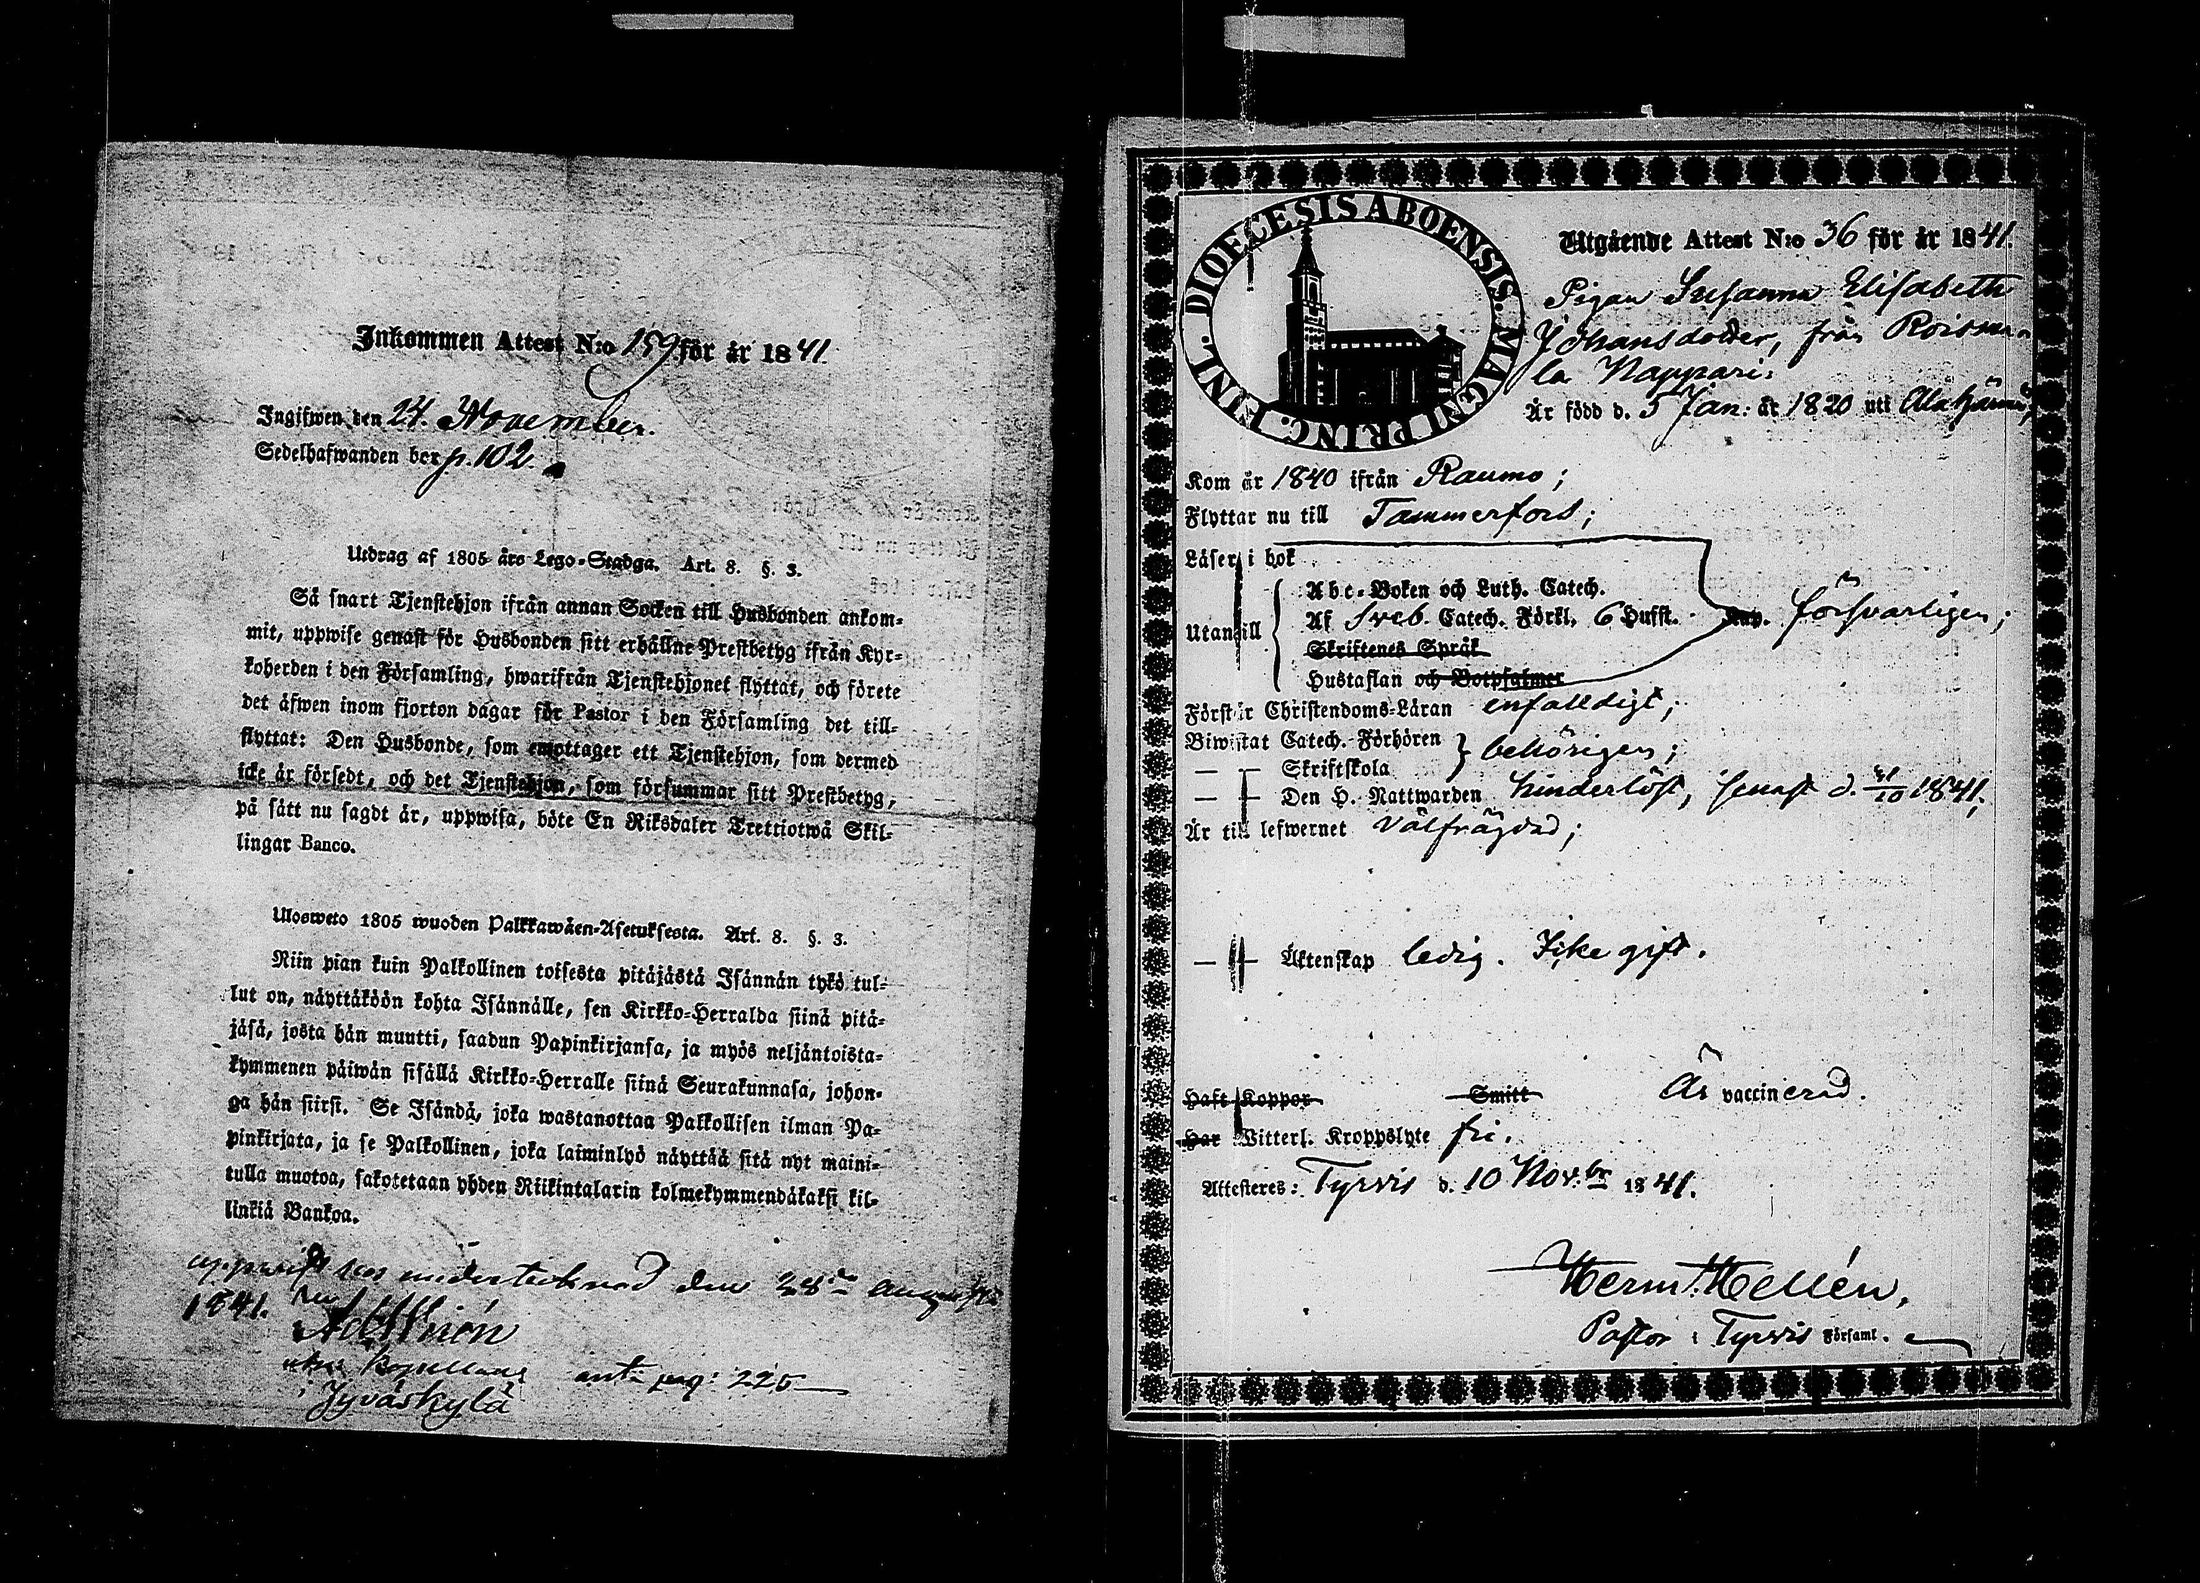 Inkommen Attest N:o 159 för år 1841
Ingifwen den 24. November.
Sedelhafwanden ber p. 102.
Utdrag af 1805 års Lego-Stadga. Art. 8. §. 3.
Så snart Tjenstehjon ifrån annan Socken till Husbonden ankom-
mit, uppwise genast för Husbonden sitt erhållne Prestbetyg ifrån Kyr-
koherden i den Församling, hwarifrån Tjenstehjonet flyttat, och förete
det äfwen inom fjorton dagar för Pastor i den Församling det till-
flyttat: Den Husbonde, som emottager ett Tjenstehjon, som dermed
icke är försedt, och det Tjenstehjon, som försummar sitt Prestbetyg,
på sätt nu sagdt är, uppwisa, böte En Riksdaler Trettiotwå Skil-
lingar Banco.
Ulosweto 1805 wuoden Palkkawäen-Asetuksesta. Art. 8. §. 3.
Niin pian kuin Palkollinen toisesta pitäjästä Isännän tykö tul-
lut on, näyttäköön kohta Isännälle, sen Kirkko-Herralda siinä pitä-
jäsä, josta hän muutti, saadun Papinkirjansa, ja myös neljäntoista-
kymmenen päiwän sisällä Kirkko-Herralle siinä Seurakunnasa, johon-
ga hän siirsi. Se Isändä, joka wastanottaa Palkollisen ilman Pa-
pinkirjata, ja se Palkollinen, joka laiminlyö näyttää sitä nyt maini-
tulla muotoa, sakotetaan yhden Riikintalarin kolmekymmendäkaksi kil-
linkiä Bankoa.
uppwist hos undertecknad den 28de Augusti
1841.
ant. pag: 225
i Jyväskylä
DIOECESIS ABOENSIS. MAGNI PRINC. FINL.
Utgående Attest N:o 36 för år 1841.
Pigan Susanna Elisabeth
Johansdotter, från Roisma-
la Nappari:
Är född d. 5 Jan: år 1820 uti
Kom år 1840 ifrån Raumo;
Flyttar nu till Tammerfors;
Läser i bok
Abc-Boken och Luth. Catech.
Utantill Af Sveb. Catech. Förkl. 6 Hufst. försvarligen;
Skriftenes Språk
Hustaflan och Botpsalmer
Förstår Christendoms-Läran enfaldigt;
Biwistat Catech. Förhören } behörigen;
— — Skriftskola
— — Den H. Nattwarden hinderlöst, senast d. 31/10 1841.
Är till lefwernet välfrägdad;
— — Äktenskap ledig. Icke gift.
Haft Koppor Smitt Är vaccinerad.
Har Witterl. Kroppslyte fri.
Attesteres: Tyrvis d. 10 Nov.br 1841.
Herm. Hellén,
Pastor i Tyrvis Församl.